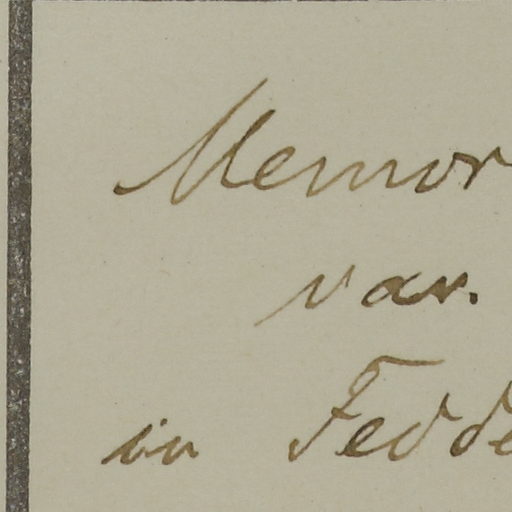 Memor
var.
in Fedde